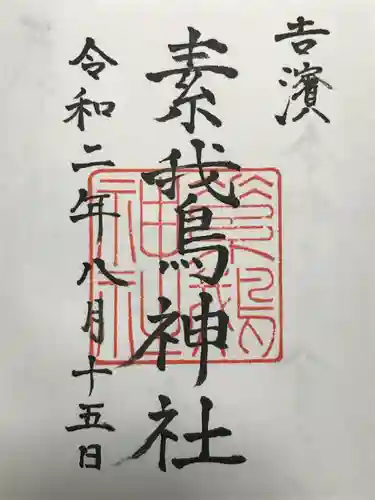 吉濱
素我鳥神社
令和二年八月十五日